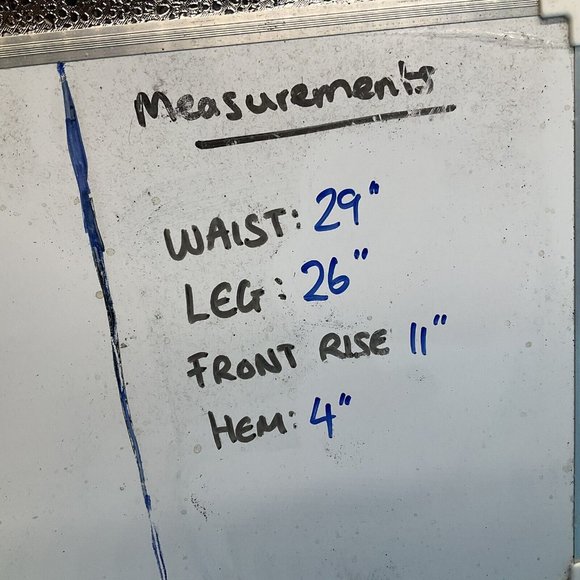 Measurements
WAIST: 29"
LEG: 26"
FRONT RISE 11"
HEM: 4"